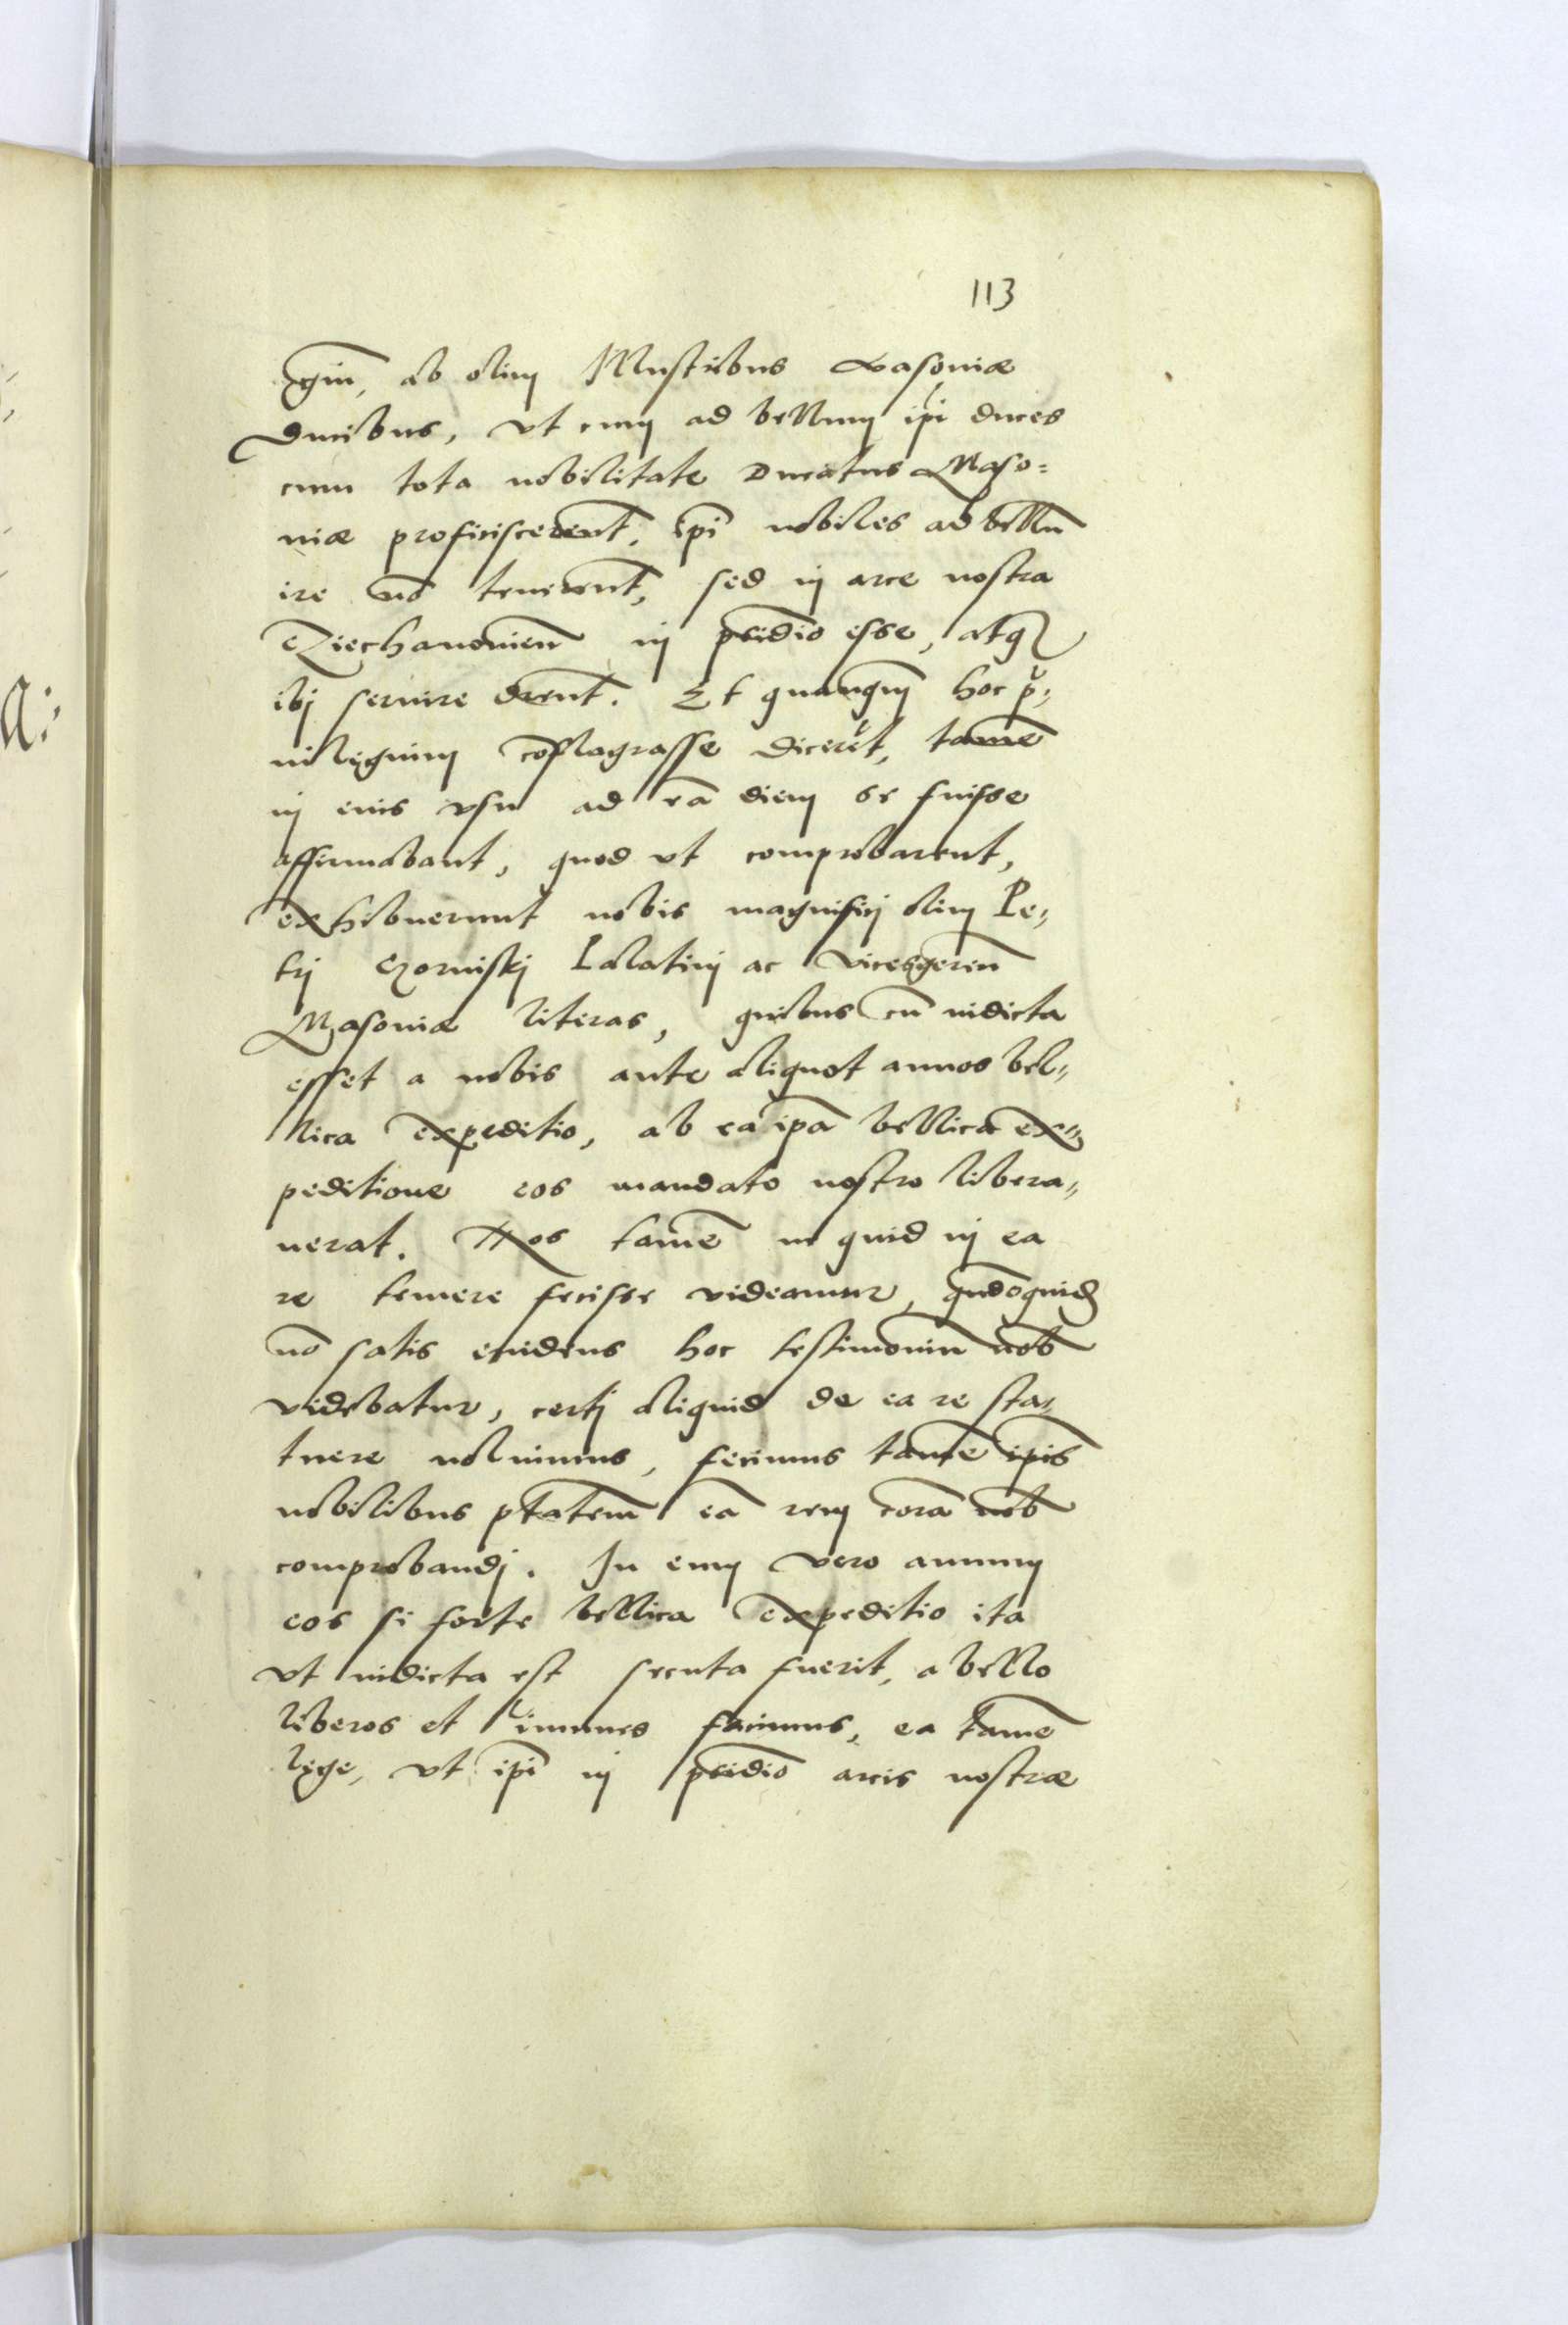 113
giũ, ab olim Illustribus Masoniæ
Ducibus, vt cum ad bellum ipĩ duces
cum tota nobilitate Ducatus Maso=
niæ proficiscerent̃, ipĩ nobiles ad bellũ
ire nõ tenerent̃, sed in arce nostra
Cziechanonień in p̃sidio esse, atq3
ibj seruire der̃ent. Et quanq̃m hoc pͥ,,
uilegium cõflagrasse diceret̃, tamẽ
in eius vsu ad eã diem se fuisse
affirmabant, quod vt comprobarent,
exhibuerunt nobis magnifici olim Pe,,
trj Goriniskj Palatini ac Vicesgereñ
Masoniæ literas, quibus cũ indicta
esset a nobis ante aliquot annos bel,,
lica expeditio, ab ea ip̃a bellica ex,,
peditione eos mandato nostro libera,,
uerat. Nos tamẽ ne quid in ea
re temere fecisse videamur, qñdoquidẽ
nõ satis euidens hoc testimoniũ nob̃
videbatur, certj aliquid de ea re sta,,
tuere noluimus, fecimus tamẽ ip̃is
nobilibus p̃tatem eã rem corã nob̃
comprobandj. In eum vero annum
eos si forte bellica expeditio ita
vt indicta est secuta fuerit, a bello
liberos et im̃unes facimus, ea tamẽ
lege, vt ipĩ in p̃sidio arcis nostræ